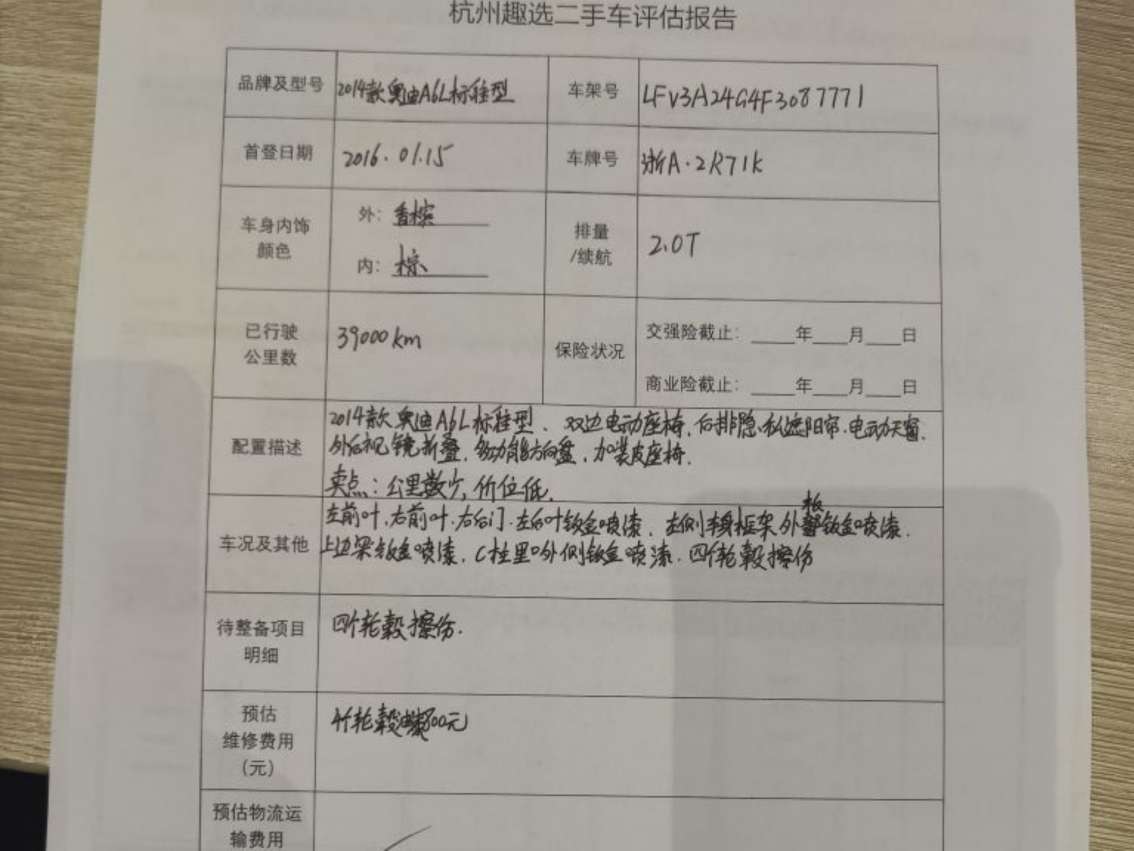 杭州趣选二手车评估报告
品牌及型号 2014款奥迪A6L标准型 车架号 LFV3A24G4F3087771
首登日期 2016.01.15 车牌号 浙A·2R71K
车身内饰颜色 外: 香槟 内: 棕 排量/续航 2.0T
已行驶公里数 39000km 保险状况 交强险截止: ____年___月___日
商业险截止: ____年___月___日
配置描述 2014款奥迪A6L标准型、双边电动座椅,后排隐私遮阳帘.电动天窗.
外后视镜折叠,多功能方向盘,加装皮座椅.
卖点:公里数少,价位低.
车况及其他 左前叶,右前叶.右后门.左后叶钣金喷漆.左侧车身框架外板钣金喷漆.
上边梁钣金喷漆,C柱里外侧钣金喷漆.四个轮毂擦伤
待整备项目明细 四个轮毂擦伤.
预估维修费用(元) 4个轮毂 800元
预估物流运输费用